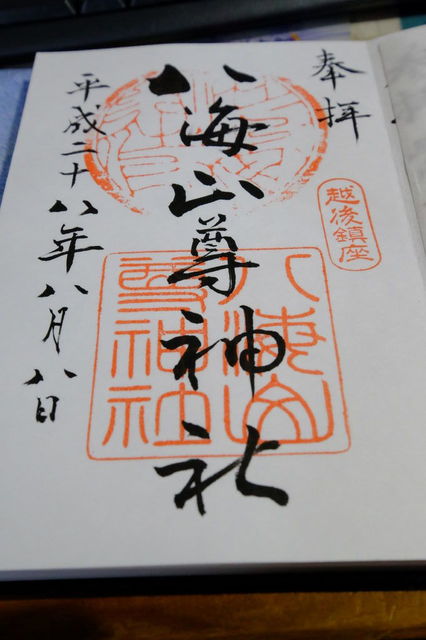 奉拝
越後鎮座
八海山尊神社
八海山
尊神社
平成二十八年八月八日